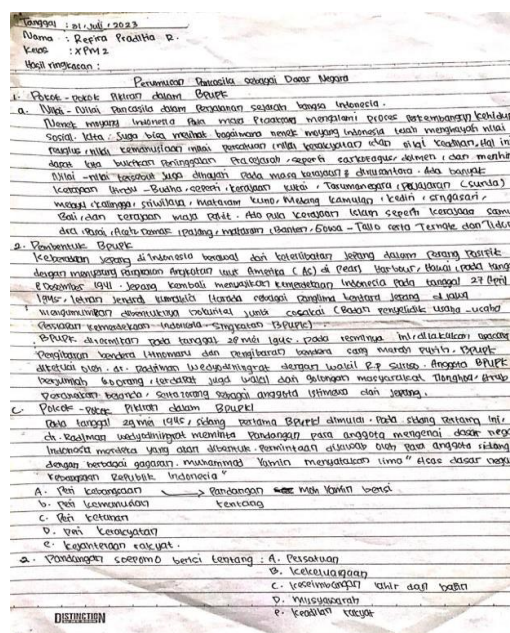 Tanggal : 31, Juli, 2023
Nama : Refira Praditia R.
Kelas : XPM2
Hasil ringkasan :
Perumusan Pancasila sebagai Dasar Negara
1. Pokok-pokok Pikiran dalam BPUPK
a. Nilai-Nilai Pancasila dalam Perjalanan sejarah bangsa Indonesia.
Nenek moyang Indonesia Pada masa Praaksara mengalami proses perkembangan kehidu
sosial. kita juga bisa melihat bagaimana nenek moyang Indonesia telah menghayati nilai
religius, nilai kemanusiaan, nilai persatuan, nilai kerakyatan dan nilai keadilan, Hal in
dapat kita buktikan Peninggalan Prasejarah, seperti sarkofagus, dolmen, dan menhir
Nilai-nilai tersebut juga dihayati pada masa kerajaan di Nusantara. Ada banyak
kerajaan Hindu-Budha, seperti, kerajaan kutai, Tarumanegara, Pajajaran (sunda)
melayu, kalingga, sriwijaya, mataram kuno, Medang kamulan, kediri, singasari,
Bali, dan kerajaan maja pahit. Ada pula kerajaan Islam seperti kerajaan samu
dra pasai, Aceh, Demak, pajang, mataram, Banten, Gowa - Tallo serta Ternate dan Tidor
2. Pembentuk BPUPK
Keberadaan jepang di Indonesia berawal dari keterlibatan jepang dalam perang Pasifik
dengan menyerang Pangkalan Angkatan laut Amerika (AS) di Pearl Harbour, Hawai, pada tang
8 Desember 1941. Jepang kembali menjanjikan kemerdekaan Indonesia Pada tanggal 29 April
1945, letnan jendral kumakichi Harada sebagai Panglima tentara jepang di jawa
mengumumkan dibentuknya Dokuritsu junbi cosakai (Badan penyelidik usaha-usaha
Persiapan kemerdekaan Indonesia - Singkatan BPUPK).
BPUPK diresmikan pada tanggal 28 mei 1945. pada resminya ini, dilakukan upacara
Pengibaran bendera Hinomaru dan pengibaran bendera sang merah putih. BPUPK
diketuai oleh. dr. Radjiman Wedyodiningrat dengan wakil R.p suroso. Anggota BPUPK
berjumlah 60 orang, terdapat juga wakil dari golongan masyarakat Tionghoa, Arab
Peranakan belanda, serta 7 orang sebagai anggota istimewa dari jepang.
C. Pokok-pokok Pikiran dalam BPUPKI
Pada tanggal 29 mei 1945, sidang pertama BPUPKI dimulai. Pada sidang pertama ini,
dr. Radjiman wedyodiningrat meminta Pandangan para anggota mengenai dasar nega
Indonesia merdeka yang akan dibentuk. Permintaan dijawab oleh para anggota sidang
dengan berbagai gagasan. muhammad Yamin menyatakan lima "asas dasar negu
kebangsaan Republik Indonesia"
A. Peri kebangsaan → Pandangan moh Yamin berisi
b. Peri kemanusian tentang
c. Peri ketuhanan
D. Peri kerakyatan
e. kesejahteraan rakyat.
2. Pandangan soepomo berisi tentang : A. Persatuan
B. Kekeluargaan
C. keseimbangan lahir dan batin
D. musyawarah
e. keadilan rakyat
DISTINCTION